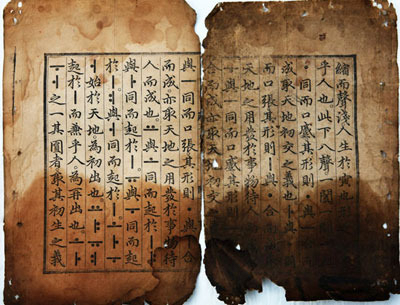 縮而聲淺人生於寅也
乎人也此下八聲一闔一
同而口蹙其形則ㆍ與
成取天地初交之義也ㅏ與
而口張其形則ㅣ與ㆍ合而
天地之用發於事物待人
與ㅡ同而口蹙其形則ㅡ與
合而成亦取天地初交之
與ㅡ同而口張其形則ㆍ與ㅣ合
而成亦取天地之用發於事物待
人而成也ㅛ與ㅗ同而起於ㅣㅑ
與ㅏ同而起於ㅣㅠ與ㅜ同而起
於ㅣㅕ與ㅓ同而起於ㅣㅗㅏㅜ
ㅓ始於天地爲初出也ㅛㅑㅠㅕ
起於ㅣ而兼乎人爲再出也ㅗㅏ
ㅜㅓ之一其圓者取其初生之義